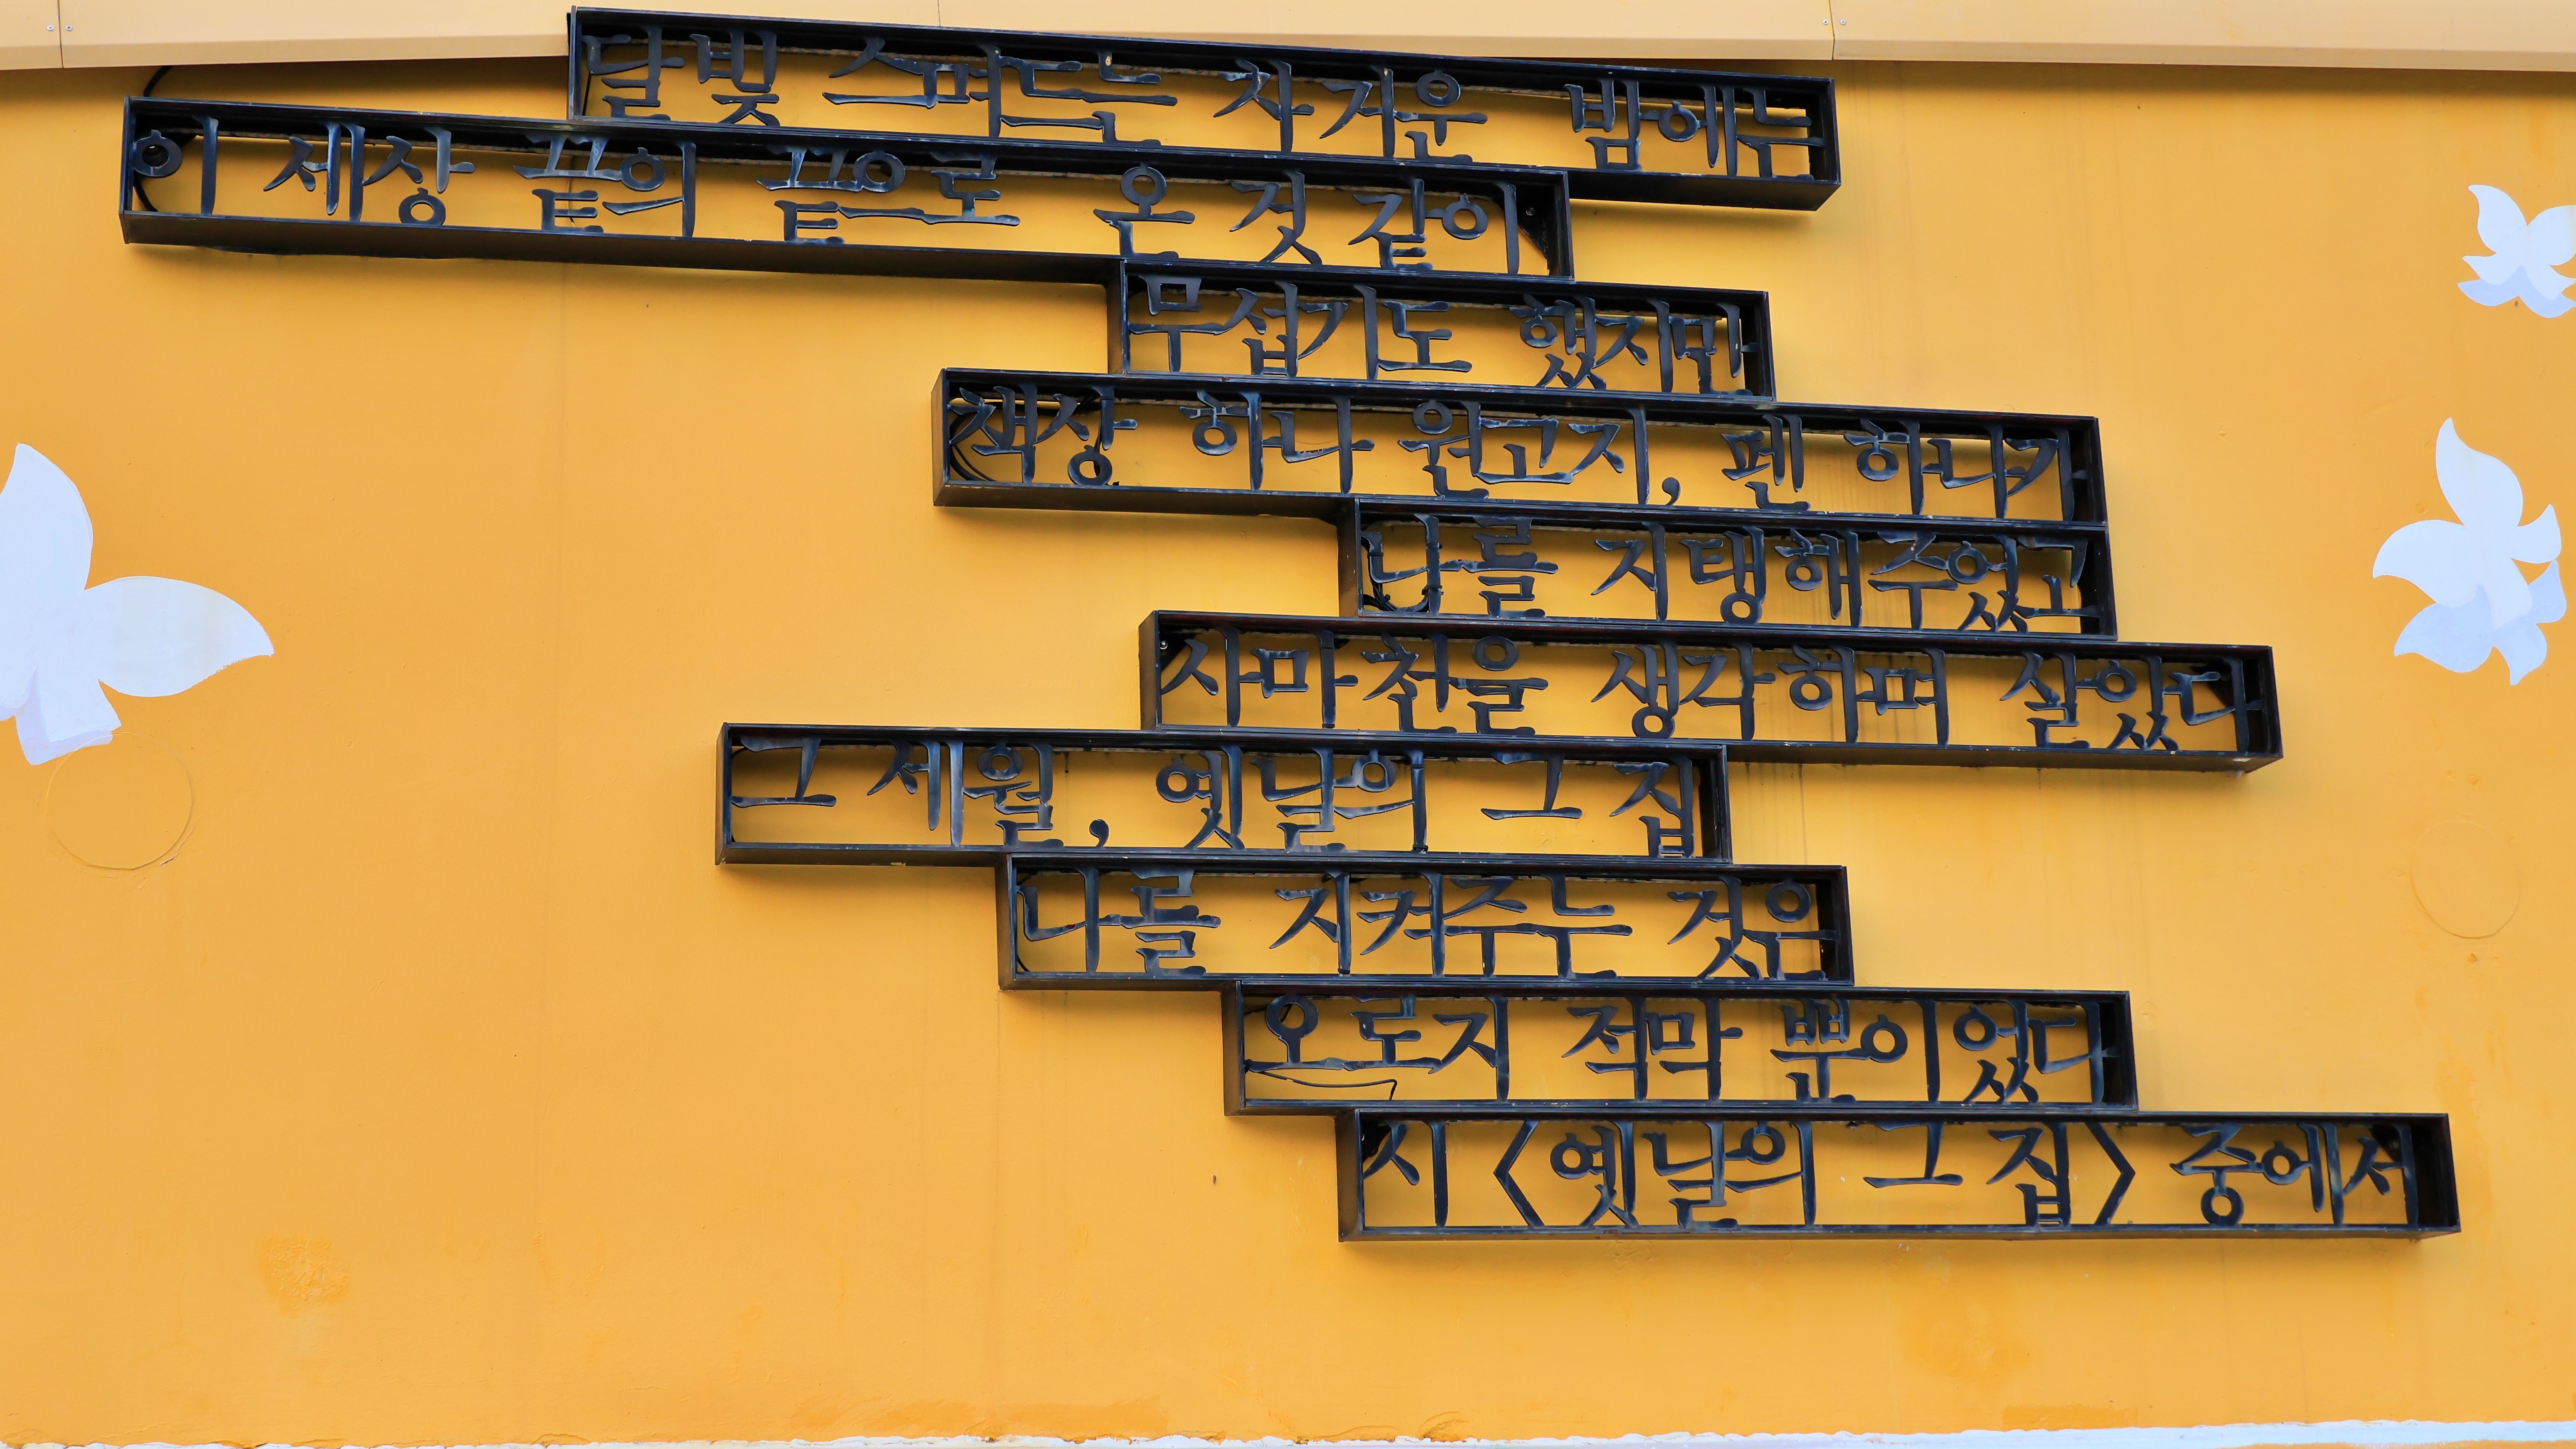 달빛 스며드는 차거운 밤에는
이 세상 끝의 끝으로 온 것 같이
무섭기도 했지만
책상 하나 원고지, 펜 하나가
나를 지탱해주었고
사마천을 생각하며 살았다
그 세월, 옛날의 그 집
나를 지켜주는 것은
오로지 적막 뿐이었다
시 〈옛날의 그 집〉 중에서